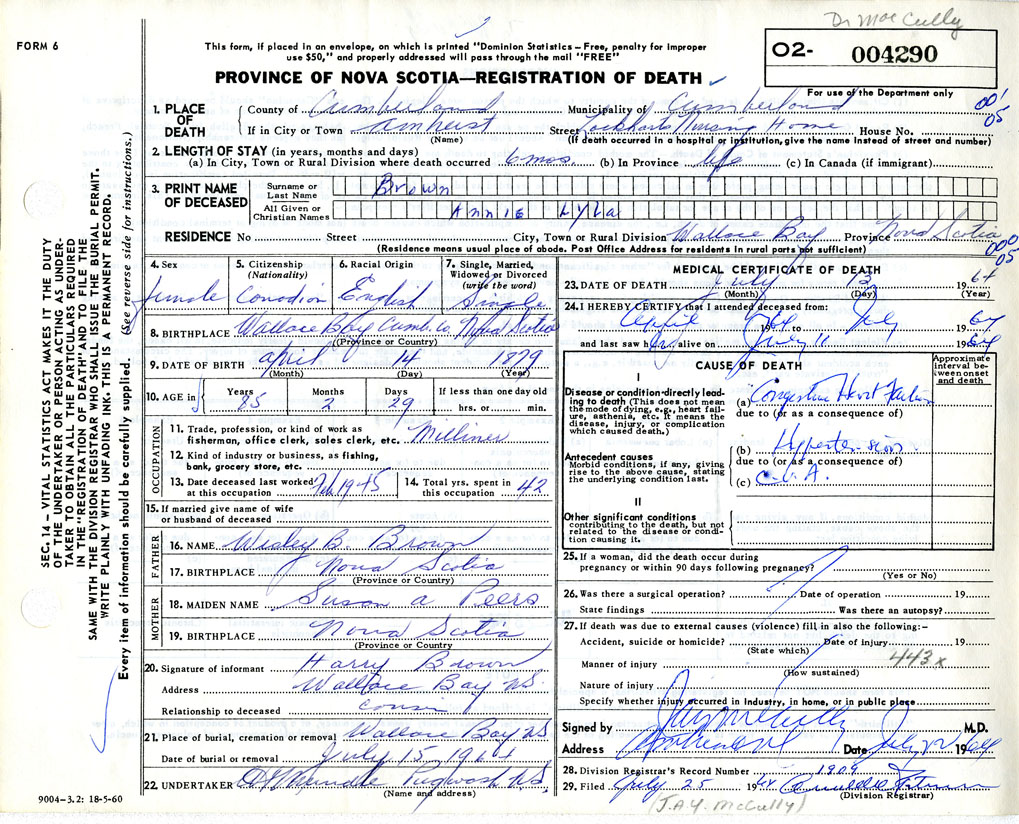 Dr MacCully
FORM 6
This form, if placed in an envelope, on which is printed "Dominion Statistics – Free, penalty for improper
use $50," and properly addressed will pass through the mail "FREE"
O2- 004290
PROVINCE OF NOVA SCOTIA—REGISTRATION OF DEATH
For use of the Department only
001
05
1. PLACE OF DEATH
County of Cumberland Municipality of Cumberland
If in City or Town Amherst Street Lockharts Nursing Home House No.
(Name) (If death occurred in a hospital or institution, give the name instead of street and number)
2. LENGTH OF STAY (in years, months and days)
(a) In City, Town or Rural Division where death occurred 6 mos. (b) In Province life (c) In Canada (if immigrant)
3. PRINT NAME OF DECEASED
Surname or Last Name Brown
All Given or Christian Names Annie Lyla
RESIDENCE No Street City, Town or Rural Division Wallace Bay Province Nova Scotia
(Residence means usual place of abode. Post Office Address for residents in rural parts not sufficient)
000
05
4. Sex female
5. Citizenship (Nationality) Canadian
6. Racial Origin English
7. Single, Married, Widowed or Divorced (write the word) Single
8. BIRTHPLACE Wallace Bay Cumb. Co. Nova Scotia
(Province or Country)
9. DATE OF BIRTH April 14 1879
(Month) (Day) (Year)
10. AGE in Years 85 Months 2 Days 29 If less than one day old hrs. or min.
OCCUPATION
11. Trade, profession, or kind of work as fisherman, office clerk, sales clerk, etc. Milliner
12. Kind of industry or business, as fishing, bank, grocery store, etc.
13. Date deceased last worked at this occupation Feb. 1945
14. Total yrs. spent in this occupation 42
15. If married give name of wife or husband of deceased
FATHER
16. NAME Wesley B. Brown
17. BIRTHPLACE Nova Scotia
(Province or Country)
MOTHER
18. MAIDEN NAME Susan A Peers
19. BIRTHPLACE Nova Scotia
(Province or Country)
20. Signature of informant Harry Brown
Address Wallace Bay N.S.
Relationship to deceased cousin
21. Place of burial, cremation or removal Wallace Bay N.S.
Date of burial or removal July 15, 1964
22. UNDERTAKER Pugwash N.S.
(Name and address)
9004–3.2: 18-5-60
MEDICAL CERTIFICATE OF DEATH
23. DATE OF DEATH July 13 1964
(Month) (Day) (Year)
24. I HEREBY CERTIFY that I attended deceased from:
April 1964 to July 1964
and last saw her alive on July 11 1964
CAUSE OF DEATH
Approximate interval between onset and death
I
Disease or condition directly leading to death (This does not mean the mode of dying, e.g., heart failure, asthenia, etc. It means the disease, injury, or complication which caused death.)
(a) Congestive Heart Failure
due to (or as a consequence of)
Antecedent causes
Morbid conditions, if any, giving rise to the above cause, stating the underlying condition last.
(b) Hypertension
due to (or as a consequence of)
(c) C.V.A.
II
Other significant conditions
contributing to the death, but not related to the disease or condition causing it.
25. If a woman, did the death occur during
pregnancy or within 90 days following pregnancy?
(Yes or No)
26. Was there a surgical operation? Date of operation 19
State findings Was there an autopsy?
27. If death was due to external causes (violence) fill in also the following:–
Accident, suicide or homicide? Date of injury 19
(State which)
443x
Manner of injury
(How sustained)
Nature of injury
Specify whether injury occurred in industry, in home, or in public place
Signed by Jay McCully M.D.
Address Amherst N.S. Date July 1964
28. Division Registrar's Record Number 1909
29. Filed July 25 1964
(Division Registrar)
(J.A.Y. McCully)
SEC. 14 – VITAL STATISTICS ACT MAKES IT THE DUTY
OF THE UNDERTAKER OR PERSON ACTING AS UNDER-
TAKER TO OBTAIN ALL THE PARTICULARS REQUIRED
IN THE "REGISTRATION OF DEATH" AND TO FILE THE
SAME WITH THE DIVISION REGISTRAR WHO SHALL ISSUE THE BURIAL PERMIT.
WRITE PLAINLY WITH UNFADING INK. THIS IS A PERMANENT RECORD.
Every item of information should be carefully supplied. (See reverse side for instructions.)